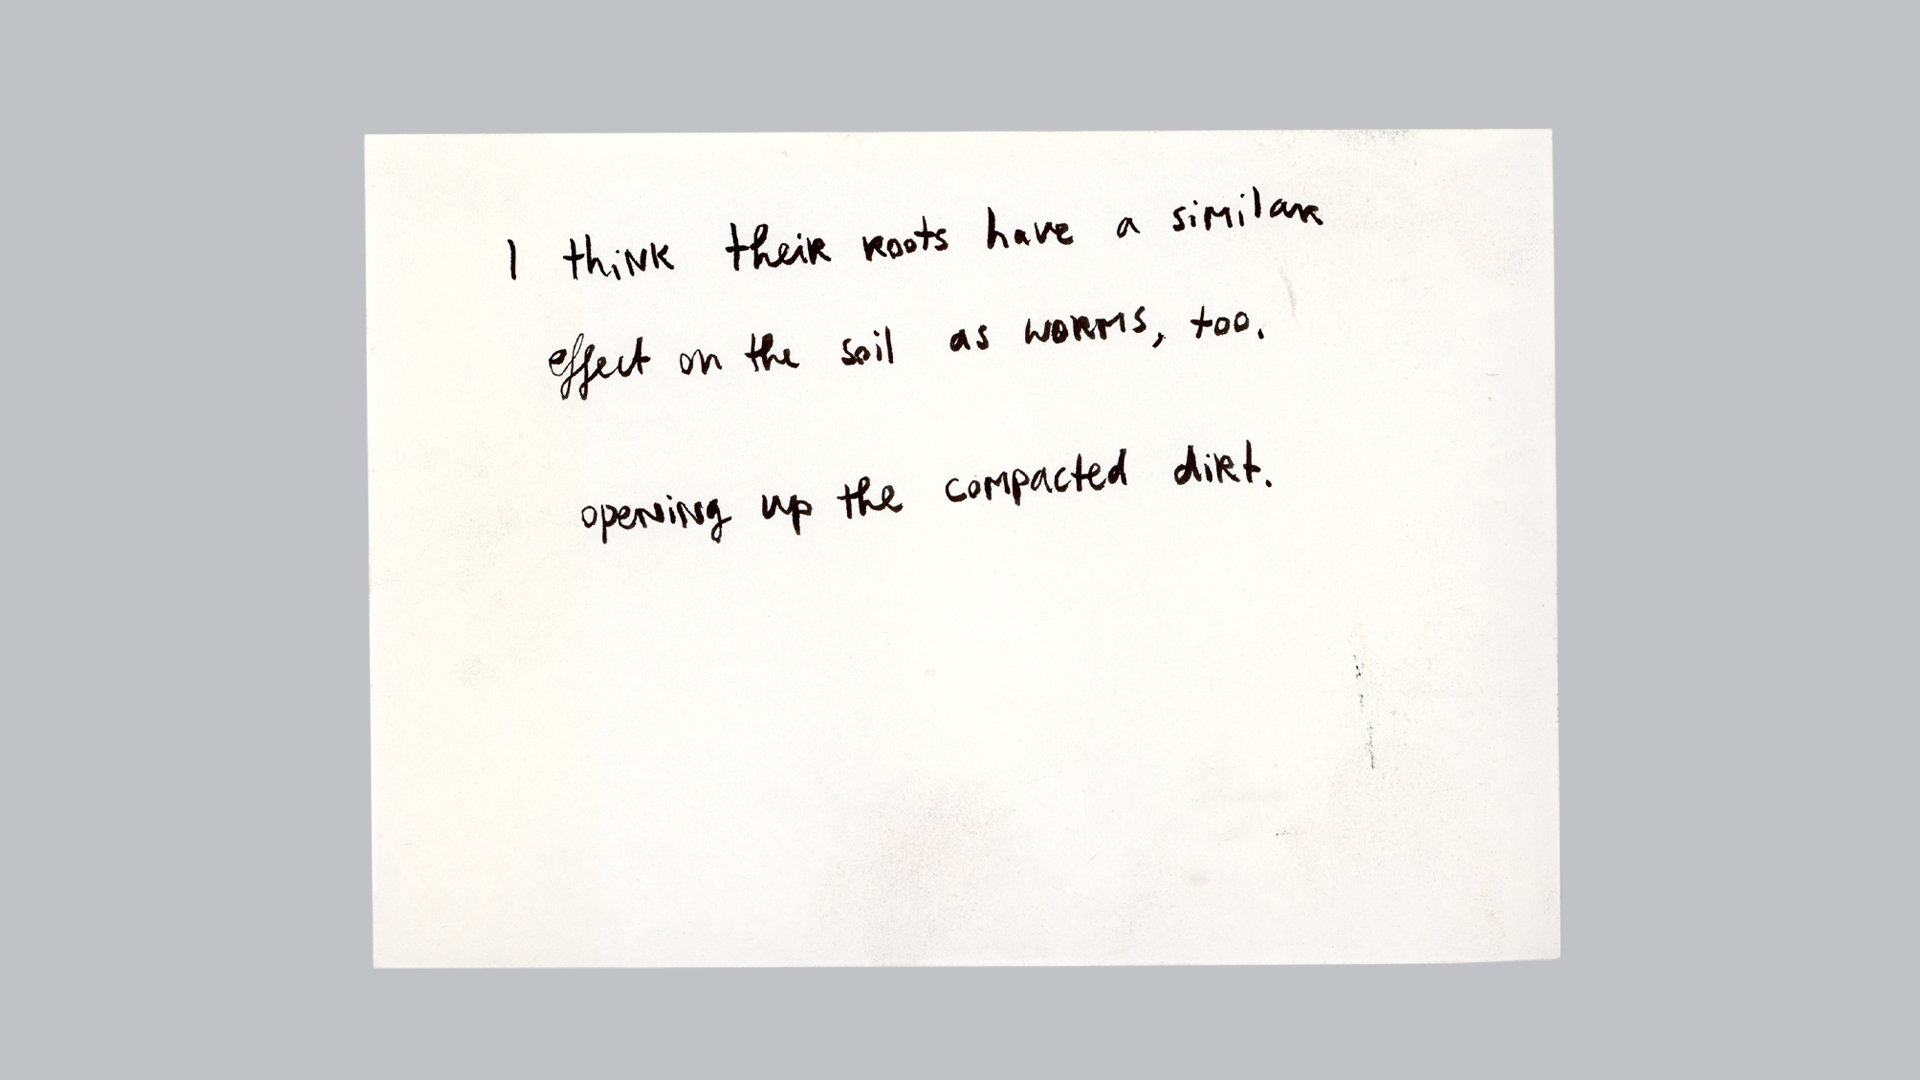 I think their roots have a similar
effect on the soil as worms, too.
opening up the compacted dirt.